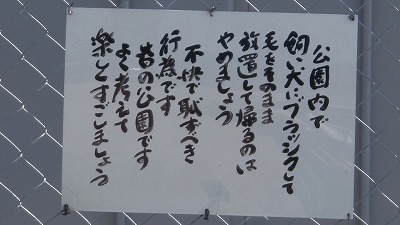 公園内で
飼い犬にブラッシクして
毛をそのまま
放置して帰るのは
やめましょう
不快で恥ずべき
行為です
皆の公園です
よく考えて
楽しくすごしましょう